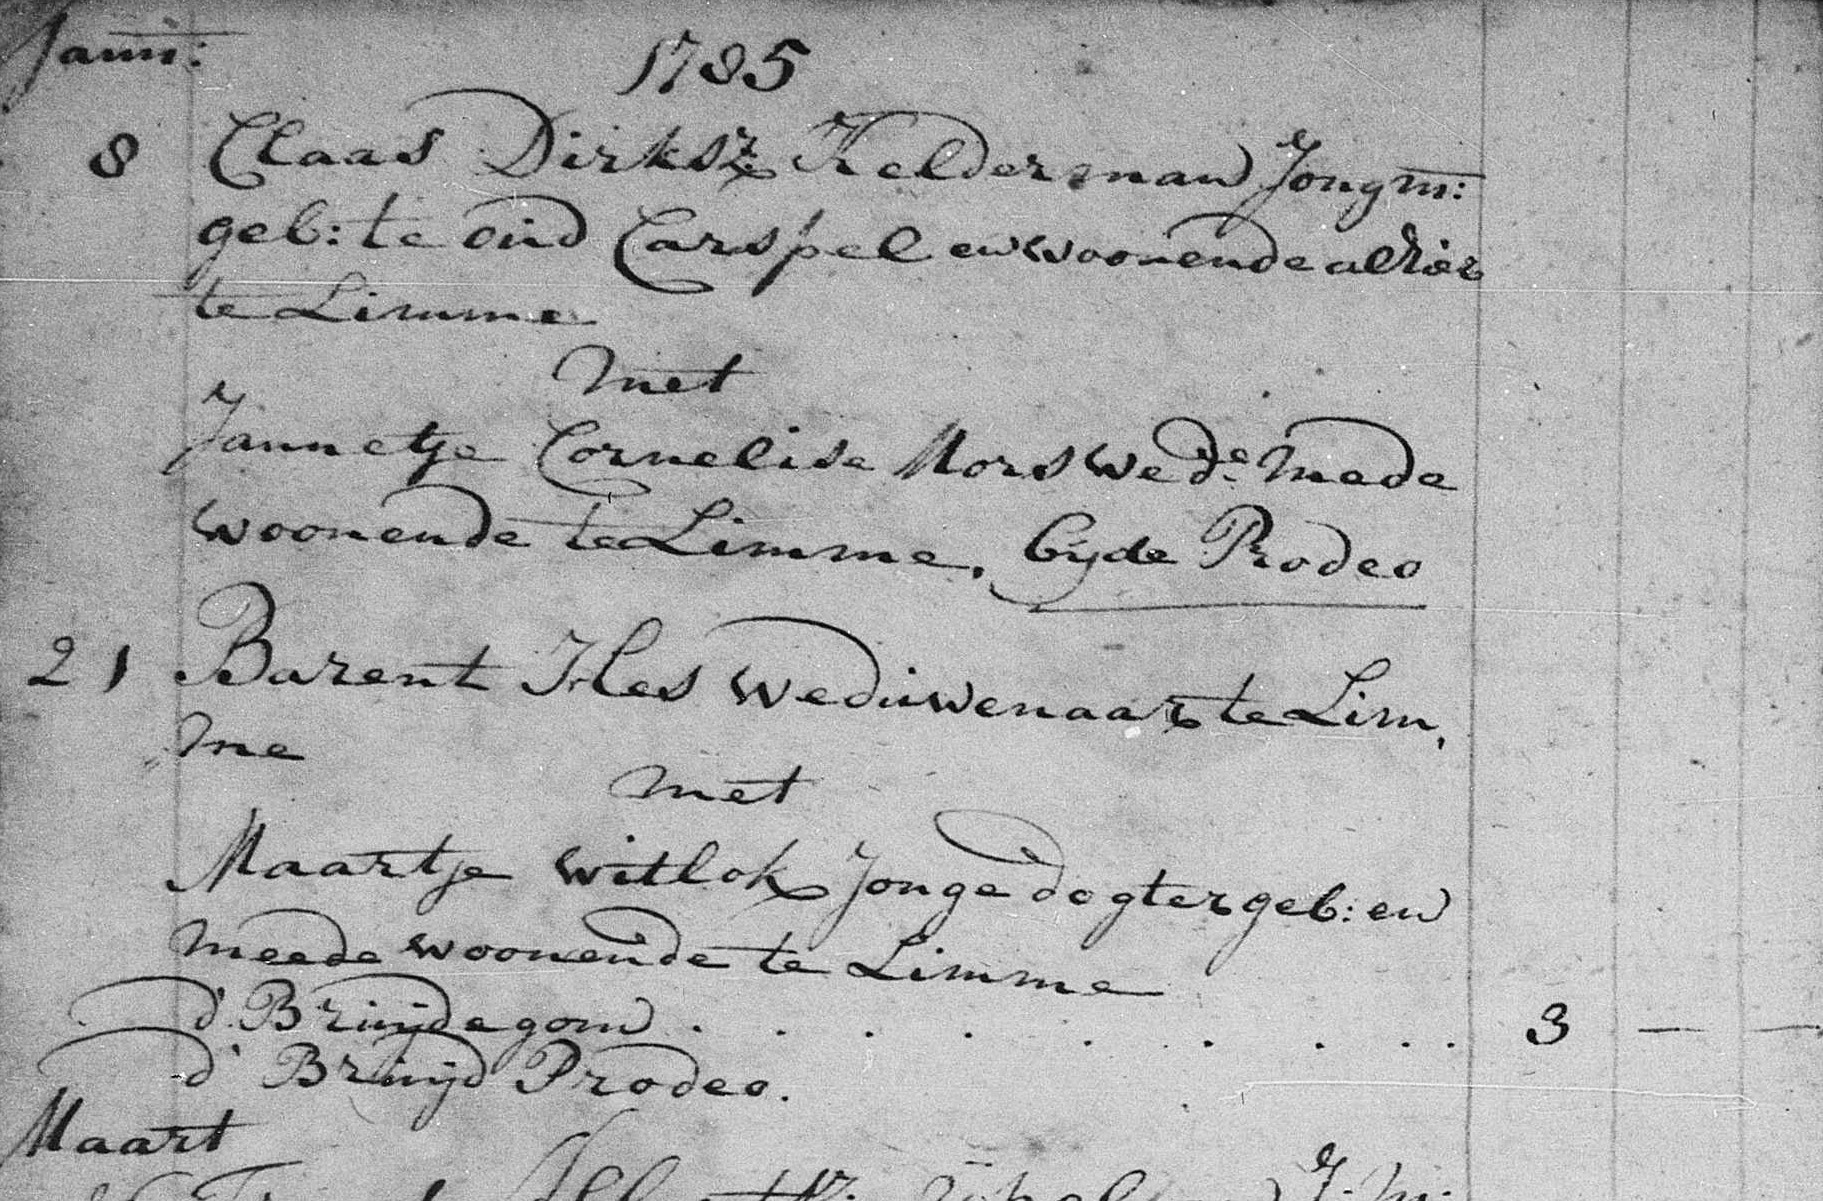 Janu:
1785
8 Claas Dirksz Kelderman Jongm:
geb: te oud Carspel en woonende alhier
te Limme
met
Jannetje Cornelise Mors wede. mede
woonende te Limme, byde Prodeo
21 Barent Hes weduwenaar te Lim,
me
met
Maartje Witlok Jonge dogter geb: en
meede woonende te Limme
d' Bruijdegom . . . . . . . . . 3 — —
d' Bruijd Prodeo.
Maart
J: M: